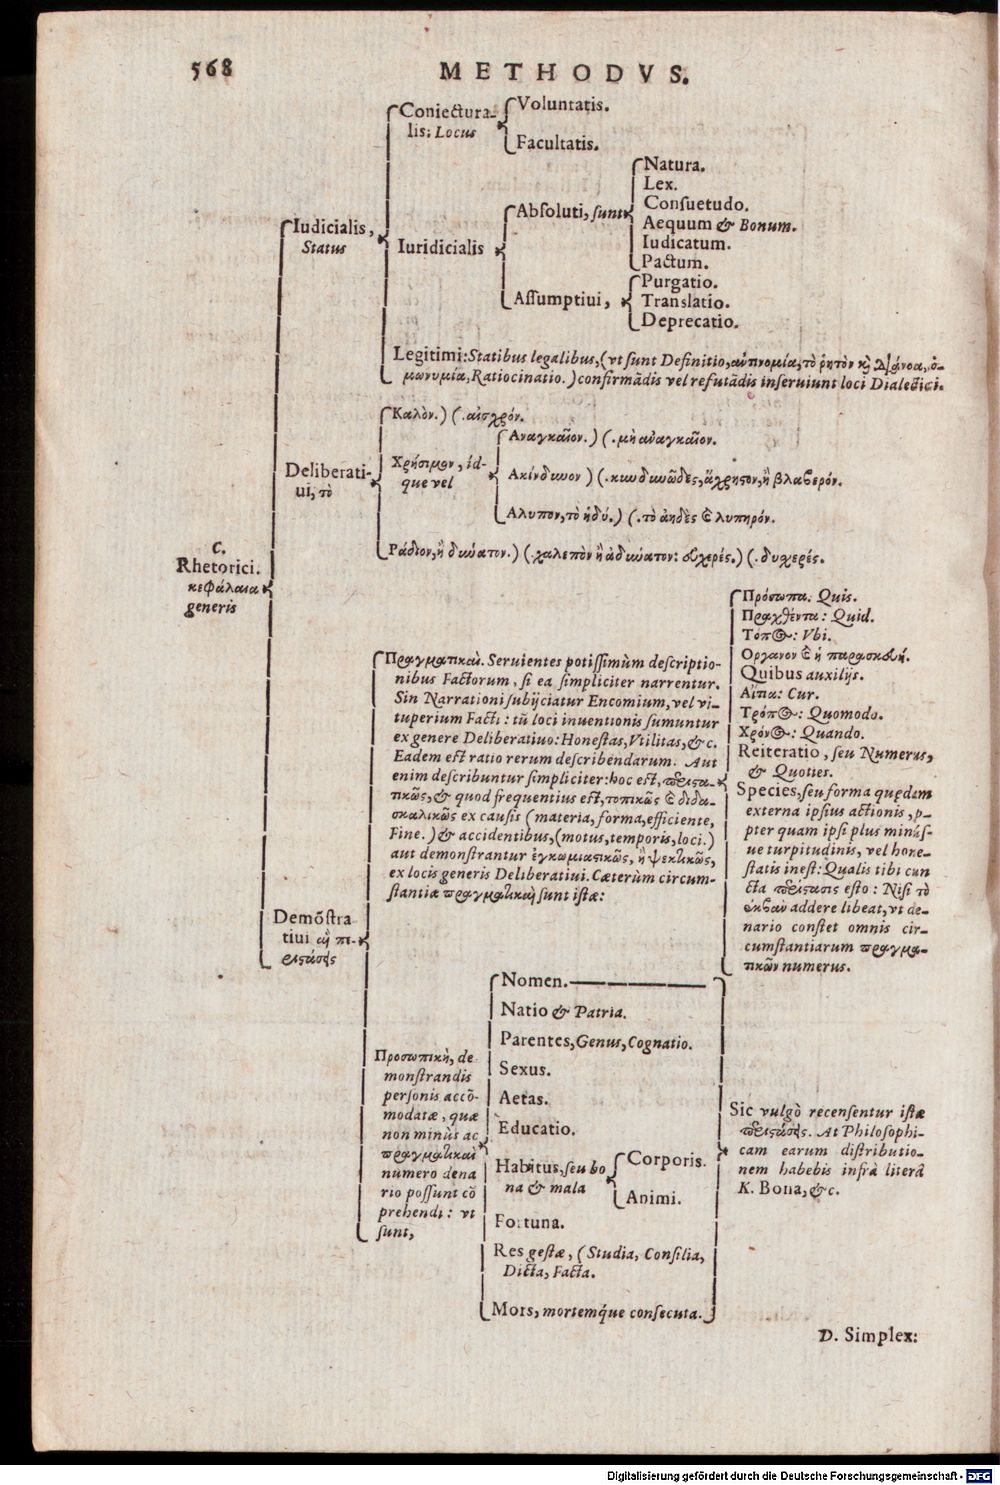 568
METHODVS.
Coniectura-
lis: Locus
Voluntatis.
Facultatis.
Iudicialis,
Status
Iuridicialis
Absoluti, sunt
Natura.
Lex.
Consuetudo.
Aequum & Bonum.
Iudicatum.
Pactum.
Assumptiui,
Purgatio.
Translatio.
Deprecatio.
Legitimi: Statibus legalibus, (vt sunt Definitio, ἀντινομία, τὸ ῥητὸν κỳ διάνοα, ὁ-
μωνυμία, Ratiocinatio.) confirmãdis vel refutãdis inseruiunt loci Dialectici.
Deliberati-
ui, τὸ
Καλὸν.) (.αἰσχρόν.
Χρήσιμον, id-
que vel
Αναγκαῖον.) (.μὴ ἀναγκαῖον.
Ακίνδυνον) (.κινδυνῶδες, ἄχρηστον, ἢ βλαβερόν.
Αλυπον, τὸ ἡδύ.) (.τὸ ἀηδὲς & λυπηρόν.
Ράδιον, ἢ δυνατον.) (.χαλεπὸν ἢ ἀδυνατον: εὐχερές.) (.δυχερές.
C.
Rhetorici.
κεφάλαια
generis
Demõstra
tiui αἱ πε-
ριστάσεις
Πραγματικαὶ. Seruientes potissimùm descriptio-
nibus Factorum, si ea simpliciter narrentur.
Sin Narrationi subijciatur Encomium, vel vi-
tuperium Facti: tũ loci inuentionis sumuntur
ex genere Deliberatiuo: Honestas, Vtilitas, &c.
Eadem est ratio rerum describendarum. Aut
enim describuntur simpliciter: hoc est, περιστα-
τικῶς, & quod frequentius est, τοπικῶς & διδα-
σκαλικῶς ex causis (materia, forma, efficiente,
Fine.) & accidentibus, (motus, temporis, loci.)
aut demonstrantur ἐγκωμιαστικῶς, ἢ ψεκτικῶς,
ex locis generis Deliberatiui. Cæterùm circum-
stantiæ πραγματικαὶ sunt istæ:
Πρόσωπα: Quis.
Πραχθέντα: Quid.
Τόπος: Vbi.
Οργανον & ἡ παρασκευή.
Quibus auxilijs.
Αἰτία: Cur.
Τρόπος: Quomodo.
Χρόνος: Quando.
Reiteratio, seu Numerus,
& Quoties.
Species, seu forma quędam
externa ipsius actionis, p-
pter quam ipsi plus minús-
ue turpitudinis, vel hone-
statis inest: Qualis tibi cun
cta περίστασις esto: Nisi τὸ
ἐκβὰν addere libeat, vt de-
nario constet omnis cir-
cumstantiarum πραγμα-
τικῶν numerus.
Προσωπικὴ, de
monstrandis
personis accõ-
modatæ, quæ
non minùs ac
πραγματικαὶ
numero dena
rio possunt cõ
prehendi: vt
sunt,
Nomen.
Natio & Patria.
Parentes, Genus, Cognatio.
Sexus.
Aetas.
Educatio.
Habitus, seu bo
na & mala
Corporis.
Animi.
Fortuna.
Res gestæ, (Studia, Consilia,
Dicta, Facta.
Mors, mortemq́ue consecuta.
Sic vulgò recensentur istæ
περιστάσεις. At Philosophi-
cam earum distributio-
nem habebis infrà literâ
K. Bona, &c.
D. Simplex:
Digitalisierung gefördert durch die Deutsche Forschungsgemeinschaft - DFG